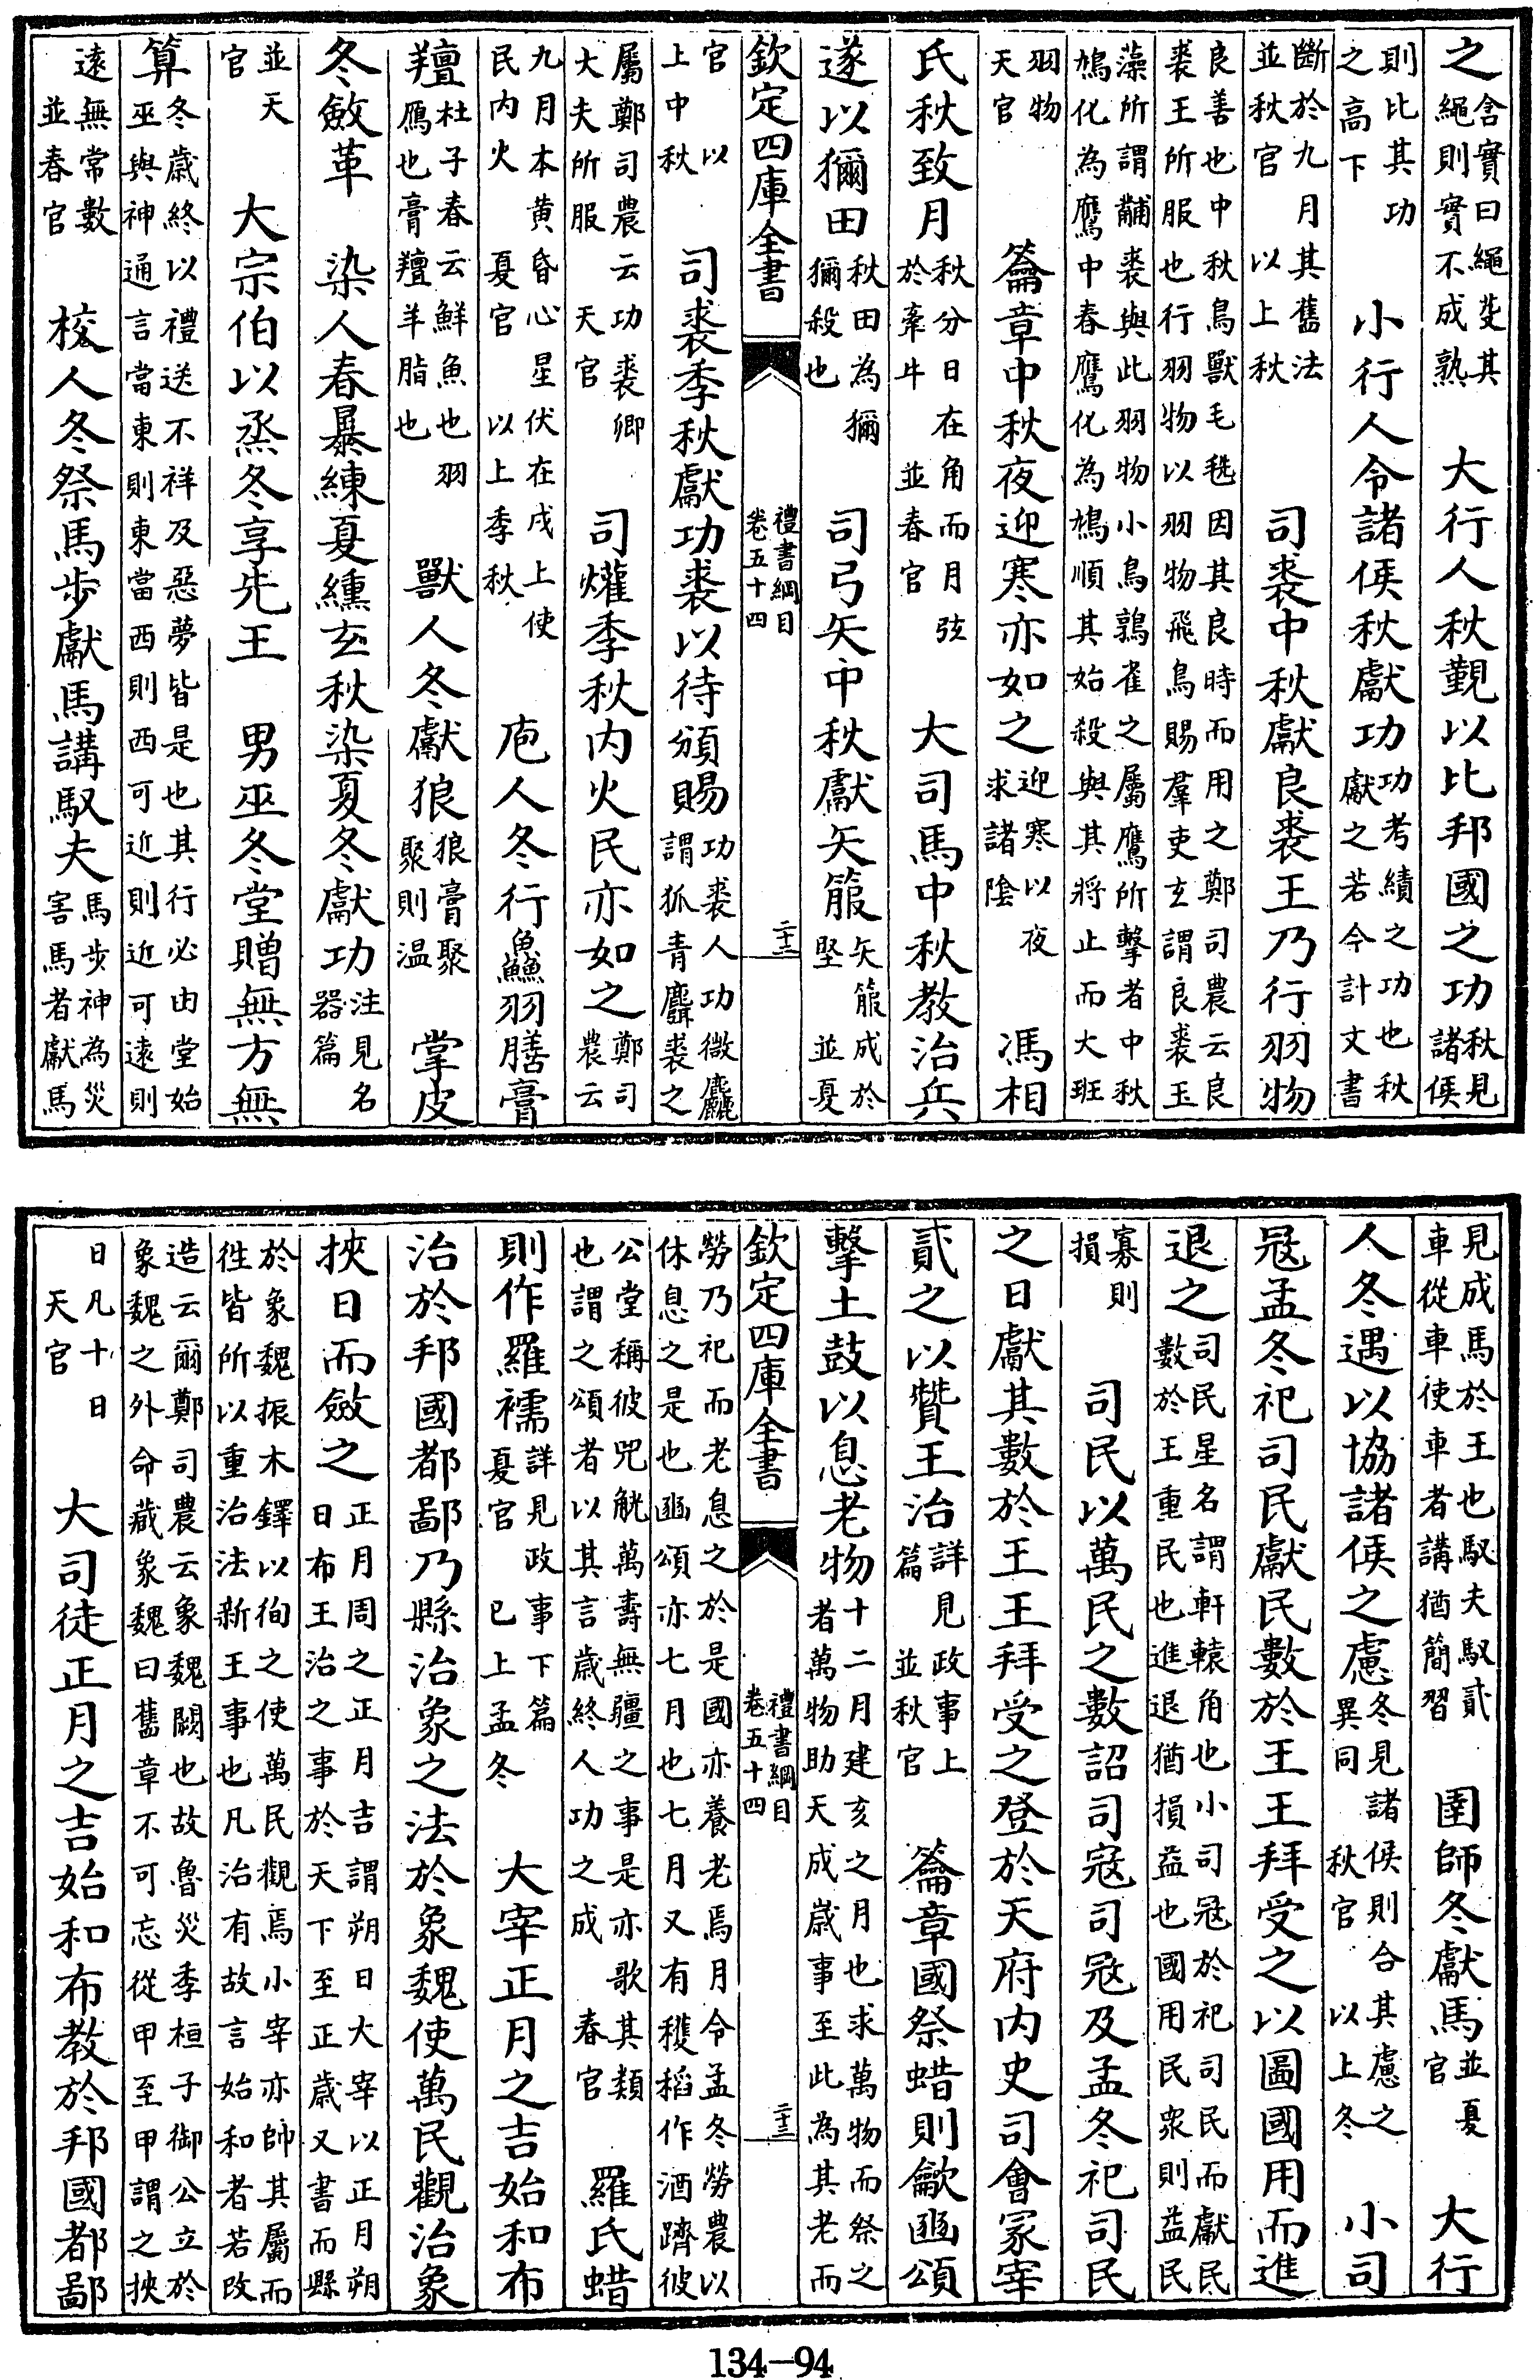 之含實曰繩㚻其繩則實不成熟　大行人秋覲以比邦國之功秋見諸侯
則比其功之高下　小行人令諸侯秋獻功功考績之功也秋獻之若今計文書
斷於九月其舊法並秋官　以上秋　司裘中秋獻良裘王乃行羽物
良善也中秋鳥獸毛毨因其良時而用之鄭司農云良裘王所服也行羽物以羽物飛鳥賜羣吏玄謂良裘玉
藻所謂黼裘與此羽物小鳥鶉雀之屬鷹所擊者中秋鳩化為鷹中春鷹化為鳩順其始殺與其將止而大班
羽物　天官　籥章中秋夜迎寒亦如之迎寒以夜求諸陰　馮相
氏秋致月秋分日在角而月弦於牽牛　並春官　大司馬中秋教治兵
遂以獮田秋田為獮獮殺也　司弓矢中秋獻矢箙矢箙成於堅　並夏
欽定四庫全書　禮書綱目卷五十四　二十三
官　以上中秋　司裘季秋獻功裘以待頒賜功裘人功微麤謂狐青麛裘之
屬鄭司農云功裘卿大夫所服　天官　司爟季秋內火民亦如之鄭司農云
九月本黃昏心星伏在戌上使民內火　夏官　以上季秋　庖人冬行鱻羽膳膏
羶杜子春云鮮魚也羽鴈也膏羶羊脂也　獸人冬獻狼狼膏聚聚則溫　掌皮
冬斂革　染人春暴練夏纁玄秋染夏冬獻功注見名器篇
並天官　大宗伯以烝冬享先王　男巫冬堂贈無方無
算冬歲終以禮送不祥及惡夢皆是也其行必由堂始巫與神通言當東則東當西則西可近則近可遠則
遠無常數　並春官　校人冬祭馬步獻馬講馭夫馬步神為災害馬者獻馬
見成馬於王也馭夫馭貳車從車使車者講猶簡習　圉師冬獻馬並夏官　大行
人冬遇以協諸侯之慮冬見諸侯則合其慮之異同　秋官　以上冬　小司
寇孟冬祀司民獻民數於王王拜受之以圖國用而進
退之司民星名謂軒轅角也小司寇於祀司民而獻民數於王重民也進退猶損益也國用民眾則益民
寡則損　司民以萬民之數詔司寇司寇及孟冬祀司民
之日獻其數於王王拜受之登於天府內史司會冢宰
貳之以贊王治詳見政事上篇　並秋官　籥章國祭蜡則龡豳頌
擊土鼓以息老物十二月建亥之月也求萬物而祭之者萬物助天成歲事至此為其老而
欽定四庫全書　禮書綱目卷五十四　二十三
勞乃祀而老息之於是國亦養老焉月令孟冬勞農以休息之是也豳頌亦七月也七月又有穫稻作酒躋彼
公堂稱彼兕觥萬壽無疆之事是亦歌其類也謂之頌者以其言歲終人功之成　春官　羅氏蜡
則作羅襦詳見政事下篇　夏官　已上孟冬　大宰正月之吉始和布
治於邦國都鄙乃縣治象之法於象魏使萬民觀治象
挾日而斂之正月周之正月吉謂朔日大宰以正月朔日布王治之事於天下至正歲又書而縣
於象魏振木鐸以徇之使萬民觀焉小宰亦帥其屬而徃皆所以重治法新王事也凡治有故言始和者若改
造云爾鄭司農云象魏闕也故魯災季桓子御公立於象魏之外命藏象魏曰舊章不可忘從甲至甲謂之挾
日凡十日　天官　大司徒正月之吉始和布教於邦國都鄙
134-94